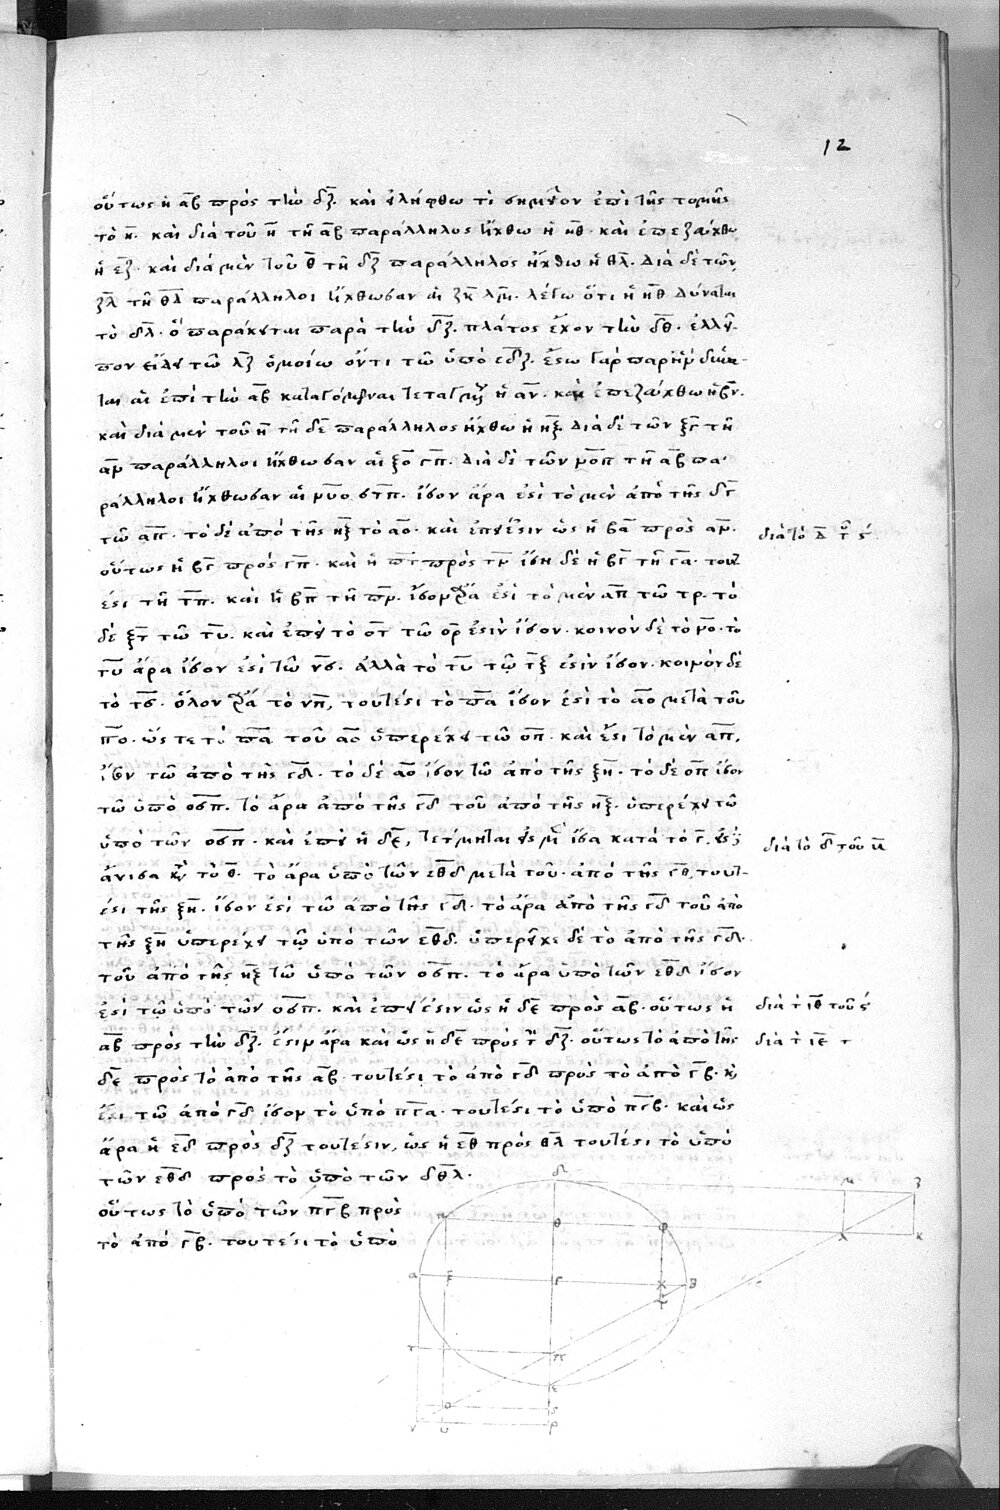 12
οὕτως ἡ αβ πρὸς τὴν δζ. καὶ εἰλήφθω τι σημεῖον ἐπὶ τῆς τομῆς
τὸ η. καὶ διὰ τοῦ η τῇ αβ παράλληλος ἤχθω ἡ ηθ. καὶ ἐπεζεύχθω
ἡ εζ. καὶ διὰ μὲν τοῦ θ τῇ δζ παράλληλος ἤχθω ἡ θλ. διὰ δὲ τῶν
ζλ τῇ θδ παράλληλοι ἤχθωσαν αἱ ζκ λμ. λέγω ὅτι ἡ ηθ δύναται
τὸ δλ. ὃ παράκειται παρὰ τὴν δζ. πλάτος ἔχον τὴν δθ. ἐλλεῖ-
πον εἴδει τῷ λζ ὁμοίῳ ὄντι τῷ ὑπὸ εδζ. ἔστω γὰρ παρ' ἣν δύναν-
ται αἱ ἐπὶ τὴν αβ καταγόμεναι τεταγμένως ἡ αν. καὶ ἐπεζεύχθω ἡ βν.
καὶ διὰ μὲν τοῦ η τῇ δε παράλληλος ἤχθω ἡ ηξ διὰ δὲ τῶν ξγ τῇ
αν παράλληλοι ἤχθωσαν αἱ ξο γπ. διὰ δὲ τῶν νοπ τῇ αβ πα-
ράλληλοι ἤχθωσαν αἱ νυ οσ τπ. ἴσον ἄρα ἐστὶ τὸ μὲν ἀπὸ τῆς δγ
τῷ απ. τὸ δὲ ἀπὸ τῆς ηξ τὸ αο. καὶ ἐπεί ἐστιν ὡς ἡ βα πρὸς αν.
οὕτως ἡ βγ πρὸς γπ. καὶ ἡ πτ πρὸς τν ἴση δὲ ἡ βγ τῇ γα. τουτ
ἐστι τῇ τπ. καὶ ἡ γπ τῇ τα. ἴσον ἄρα ἐστὶ τὸ μὲν απ τῷ τρ. τὸ
δὲ ξτ τῷ τυ. καὶ ἐπεὶ τὸ οτ τῷ ορ ἐστὶν ἴσον. κοινὸν δὲ τὸ νο. τὸ
τυ ἄρα ἴσον ἐστὶ τῷ νσ. ἀλλὰ τὸ τυ τῷ τξ ἐστὶν ἴσον. κοινὸν δὲ
τὸ τσ. ὅλον ἄρα τὸ νπ, τουτέστι τὸ πα ἴσον ἐστὶ τὸ αο μετὰ τοῦ
πο. ὥστε τὸ πα τοῦ αο ὑπερέχει τῷ οπ. καὶ ἔστι τὸ μὲν απ,
ἴσον τῷ ἀπὸ τῆς γδ. τὸ δὲ αο ἴσον τῷ ἀπὸ τῆς ξη. τὸ δὲ οπ ἴσον
τῷ ὑπὸ οσπ. τὸ ἄρα ἀπὸ τῆς γδ τοῦ ἀπὸ τῆς ηξ. ὑπερέχει τῷ
ὑπὸ τῶν οσπ. καὶ ἐπεὶ ἡ δε, τέτμηται εἰς μὲν ἴσα κατὰ τὸ γ. εἰς δὲ
ἄνισα κατὰ τὸ θ. τὸ ἄρα ὑπὸ τῶν εθδ μετὰ τοῦ ἀπὸ τῆς γθ, τουτ-
έστι τῆς ξη. ἴσον ἐστὶ τῷ ἀπὸ τῆς γδ. τὸ ἄρα ἀπὸ τῆς γδ τοῦ ἀπὸ
τῆς ξη ὑπερέχει τῷ ὑπὸ τῶν εθδ. ὑπερεῖχε δὲ τὸ ἀπὸ τῆς γδ.
τοῦ ἀπὸ τῆς ηξ τῷ ὑπὸ τῶν οσπ. τὸ ἄρα ὑπὸ τῶν εθδ ἴσον
ἐστὶ τῷ ὑπὸ τῶν οσπ. καὶ ἐπεί ἐστιν ὡς ἡ δε πρὸς αβ. οὕτως ἡ
αβ πρὸς τὴν δζ. ἔστιν ἄρα καὶ ὡς ἡ δε πρὸς τὴν δζ. οὕτως τὸ ἀπὸ τῆς
δε πρὸς τὸ ἀπὸ τῆς αβ. τουτέστι τὸ ἀπὸ γδ πρὸς τὸ ἀπὸ γβ. καὶ
ἔστι τῷ ἀπὸ γδ ἴσον τὸ ὑπὸ πγα. τουτέστι τὸ ὑπὸ πγβ. καὶ ὡς
ἄρα ἡ εδ πρὸς δζ τουτέστιν, ὡς ἡ εθ πρὸς θλ τουτέστι τὸ ὑπὸ
τῶν εθδ πρὸς τὸ ὑπὸ τῶν δθλ.
οὕτως τὸ ὑπὸ τῶν πγβ πρὸς
τὸ ἀπὸ γβ. τουτέστι τὸ ὑπὸ
διὰ τὸ δ τοῦ ς
διὰ τὸ ε τοῦ β
διὰ τ ιθ τοῦ ς
διὰ τ ιε τ
δ μ ζ
η θ φ λ κ
α ξ γ χ β
τ π
ε
ο σ
ν υ ρ